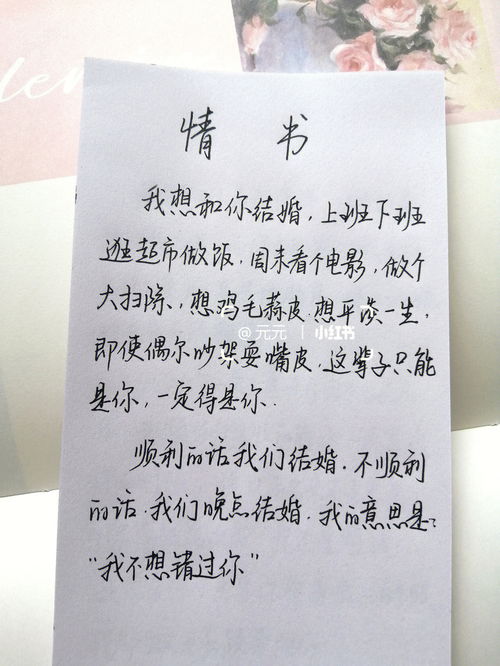 情 书
我想和你结婚，上班下班
逛超市做饭，周末看个电影，做个
大扫除，想鸡毛蒜皮.想平淡一生，
@元元 | 小红书
即使偶尔吵架耍嘴皮，这辈子只能
是你，一定得是你.
顺利的话我们结婚.不顺利
的话.我们晚点结婚.我的意思是：
“我不想错过你”